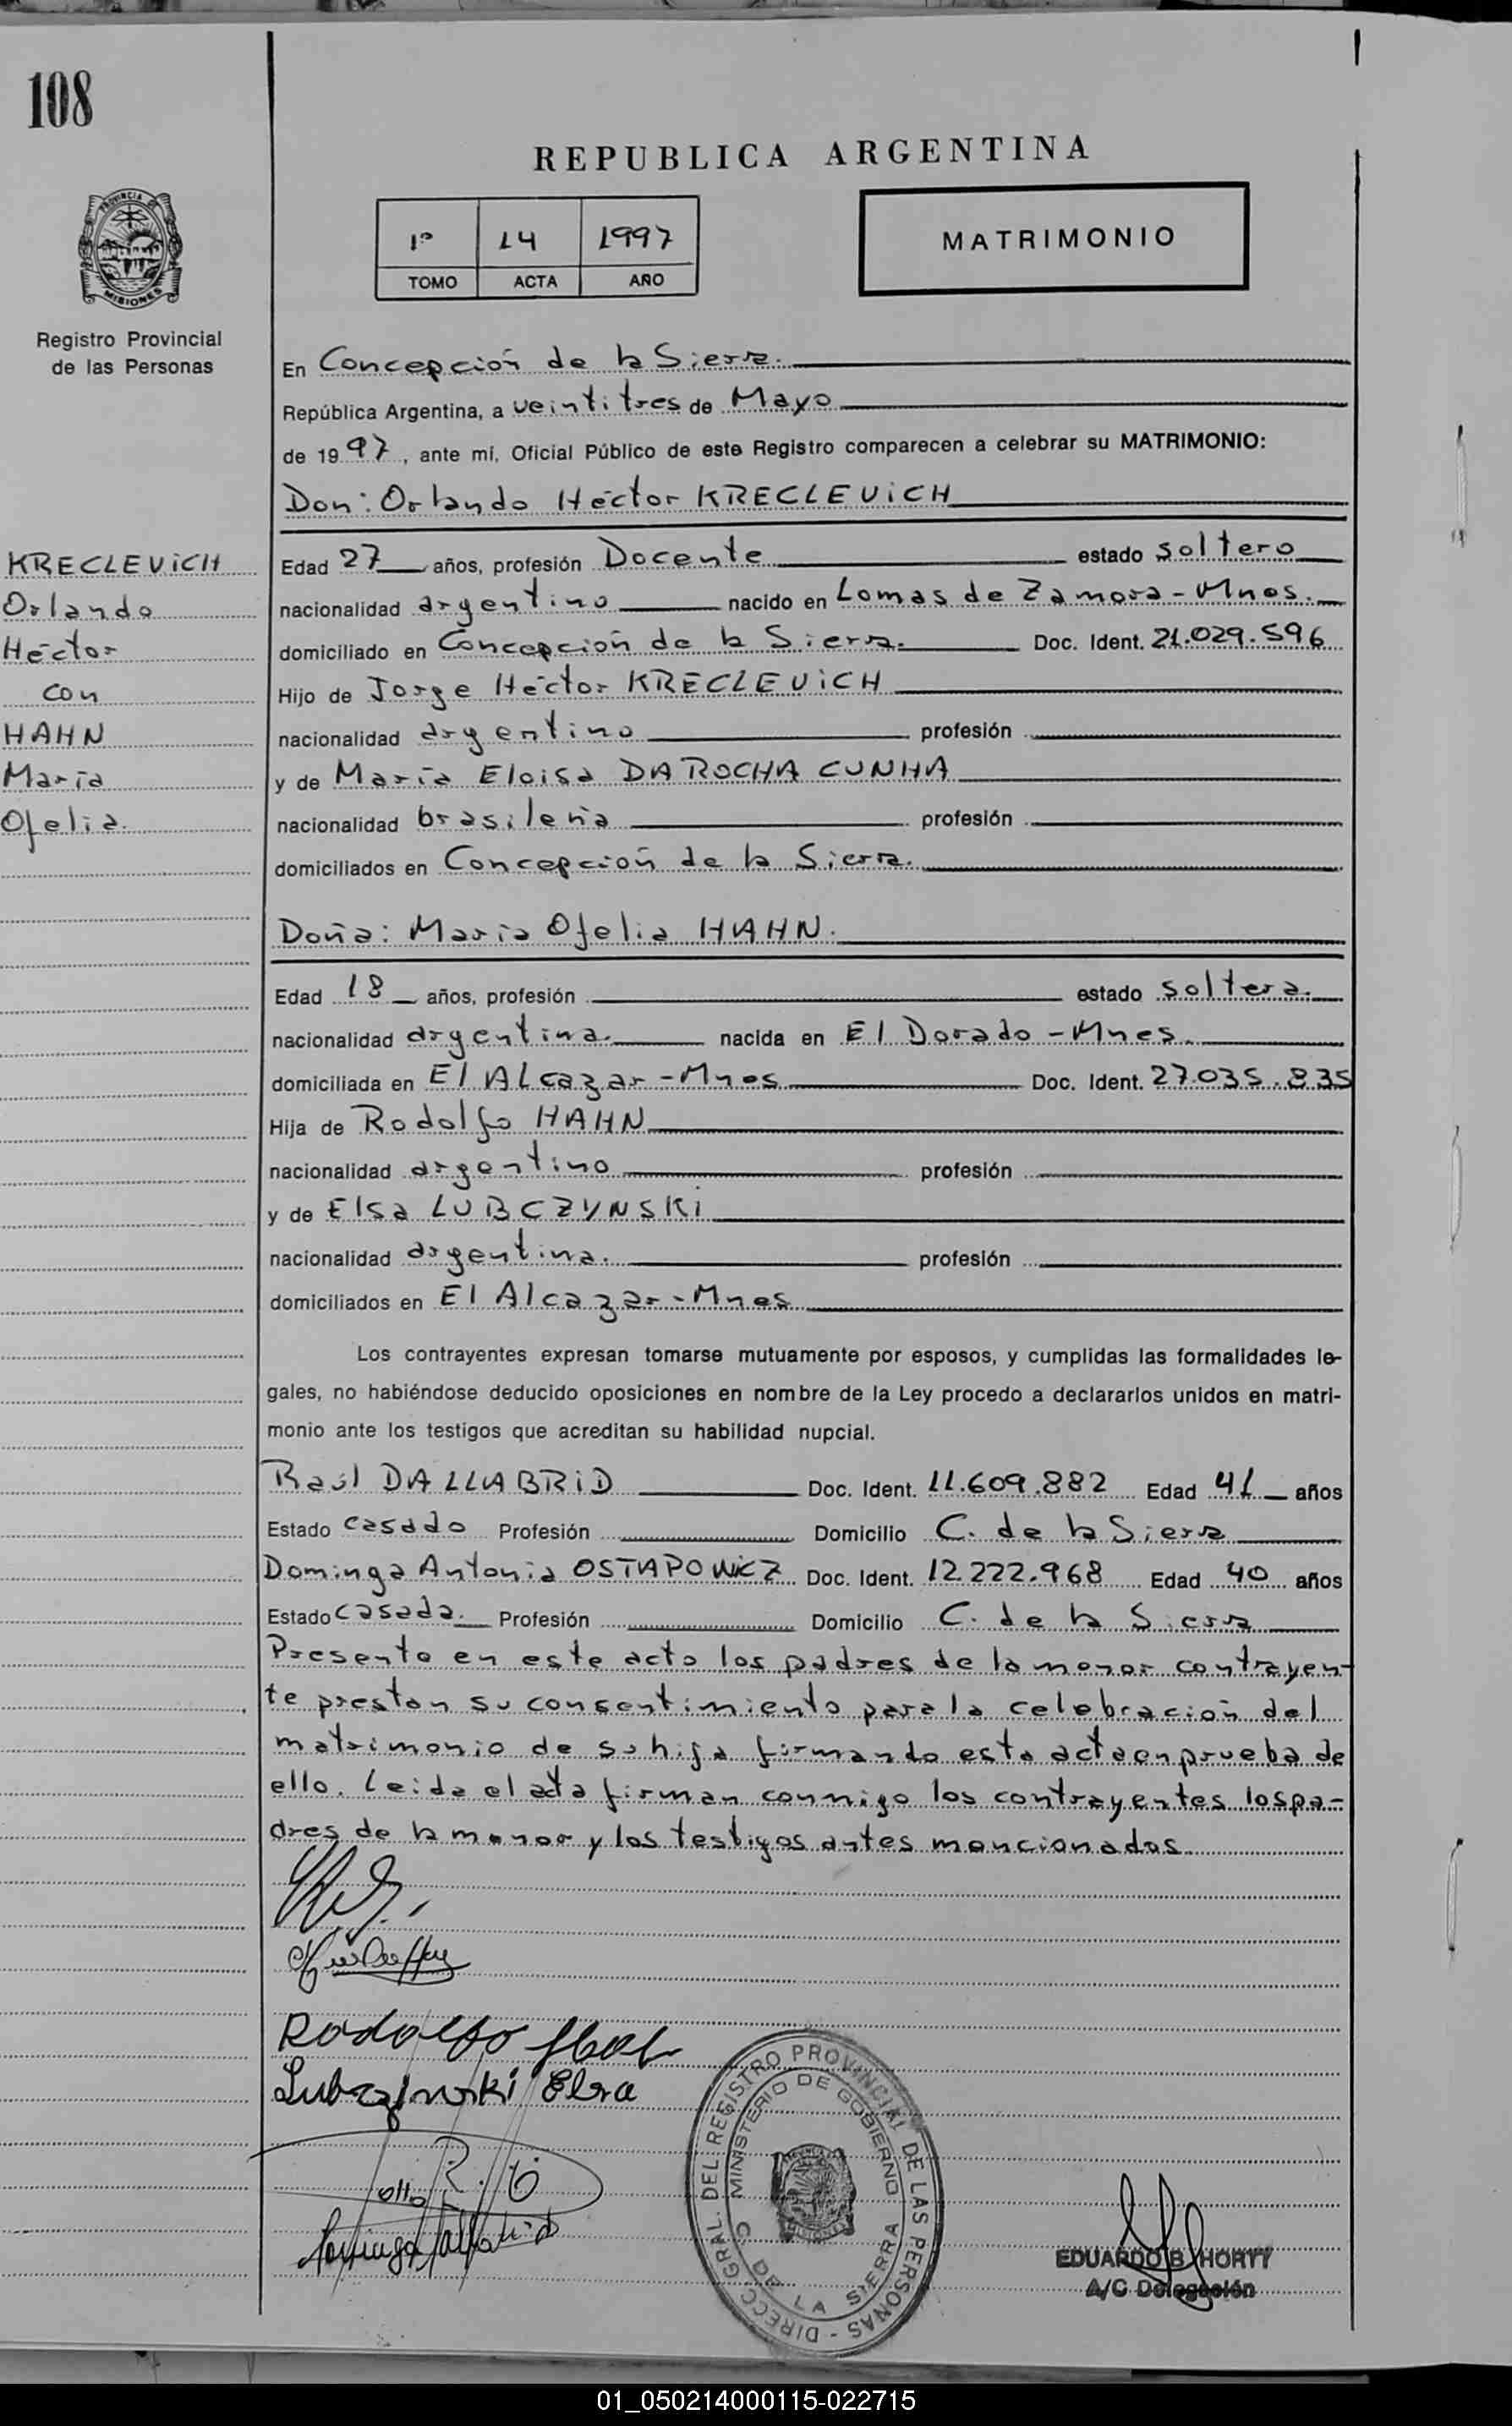 108
REPUBLICA ARGENTINA
1º 14 1997
TOMO ACTA AÑO
MATRIMONIO
PROVINCIA DE
MISIONES
Registro Provincial
de las Personas
En Concepción de la Sierra.
República Argentina, a veintitres de Mayo
de 1997, ante mí, Oficial Público de este Registro comparecen a celebrar su MATRIMONIO:
Don: Orlando Héctor KRECLEVICH
KRECLEVICH
Orlando
Héctor
con
HAHN
María
Ofelia.
Edad 27 años, profesión Docente estado soltero
nacionalidad argentino nacido en Lomas de Zamora - Mnes.
domiciliado en Concepción de la Sierra. Doc. Ident. 21.029.596
Hijo de Jorge Héctor KRECLEVICH
nacionalidad argentino profesión
y de María Eloisa DA ROCHA CUNHA
nacionalidad brasileña profesión
domiciliados en Concepción de la Sierra.
Doña: María Ofelia HAHN.
Edad 18 años, profesión estado soltera.
nacionalidad argentina. nacida en El Dorado - Mnes.
domiciliada en El ALcazar - Mnes Doc. Ident. 27.035.835
Hija de Rodolfo HAHN
nacionalidad argentino profesión
y de Elsa LUBCZYNSKI
nacionalidad argentina. profesión
domiciliados en El Alcazar - Mnes
Los contrayentes expresan tomarse mutuamente por esposos, y cumplidas las formalidades le-
gales, no habiéndose deducido oposiciones en nombre de la Ley procedo a declararlos unidos en matri-
monio ante los testigos que acreditan su habilidad nupcial.
Raúl DALLABRID Doc. Ident. 11.609.882 Edad 41 años
Estado casado Profesión Domicilio C. de la Sierra
Dominga Antonia OSTAPOWICZ Doc. Ident. 12.222.968 Edad 40 años
Estado casada. Profesión Domicilio C. de la Sierra
Presente en este acto los padres de la menor contrayen-
te prestan su consentimiento para la celebración del
matrimonio de su hija firmando esta acta en prueba de
ello. Leida el acta firman conmigo los contrayentes los pa-
dres de la menor y los testigos antes mencionados
Rodolfo
Lubczynski Elsa
DIRECC. GRAL. DEL REGISTRO PROVINCIAL DE LAS PERSONAS -
MINISTERIO DE GOBIERNO
C. DE LA SIERRA
EDUARDO B. HORTY
A/C Delegación
01_050214000115-022715